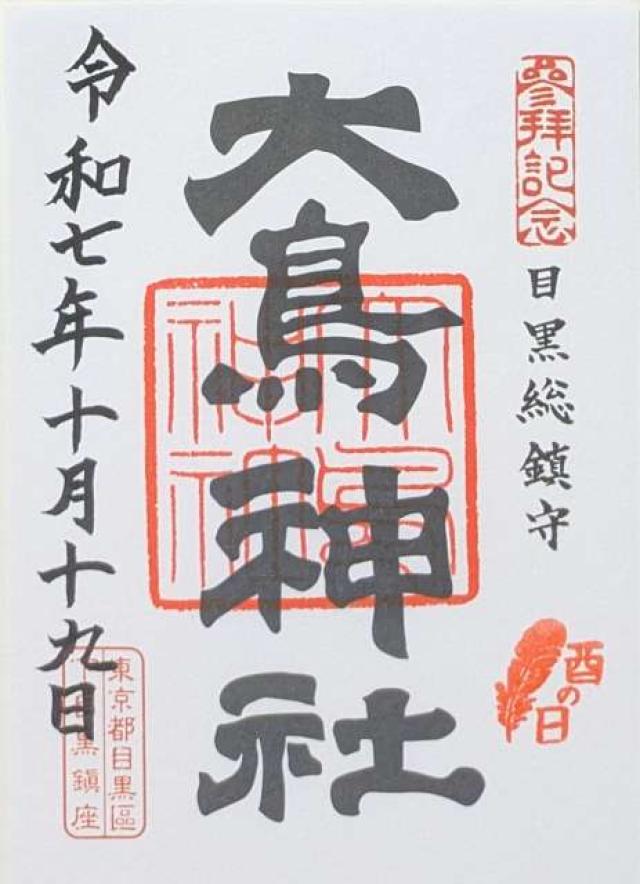 參拝記念
目黒総鎮守
酉の日
大鳥神社
令和七年十月十九日
東京都目黒區
黒鎮座